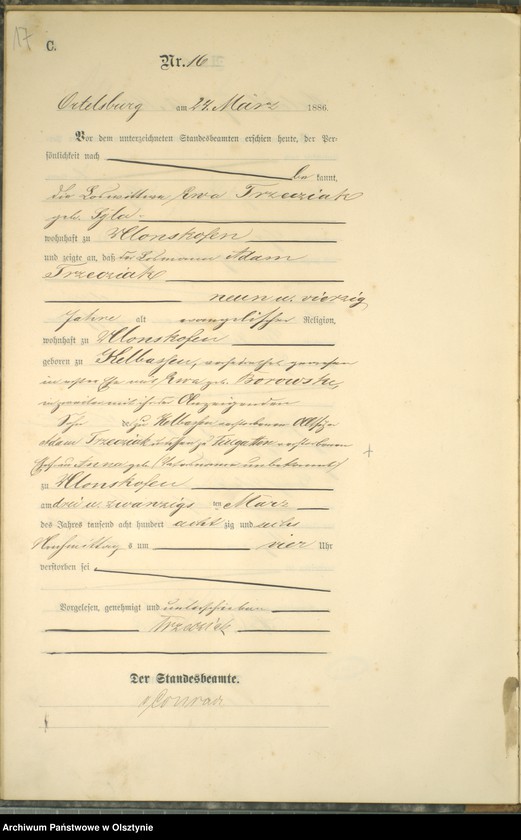 17
C.
Nr. 16
Ortelsburg am 24. März 1886.
Vor dem unterzeichneten Standesbeamten erschien heute, der Per-
sönlichkeit nach
be kannt,
die Losmittwe Ewa Trzeziak
geb. Sgla
wohnhaft zu Klonskofen
und zeigte an, daß der Losmann Adam
Trzeziak
neun u. vierzig
Jahre alt evangelischer Religion,
wohnhaft zu Klonskofen
geboren zu Kelbassen, verheirathet gewesen
in erster Ehe mit Ewa geb. Borowski,
in zweiter mit der Anzeigenden
Sohn de zu Kelbassen verstorbenen
Adam Trzeziak dessen zu verstorbenen
Ehefrau Anna geb. unbekannt
zu Klonskofen
am drei u. zwanzigs ten März
des Jahres tausend acht hundert acht zig und sechs
Nachmittag s um vier Uhr
verstorben sei
Vorgelesen, genehmigt und unterschrieben
Trzeziak
Der Standesbeamte.
v. Conrad
Archiwum Państwowe w Olsztynie